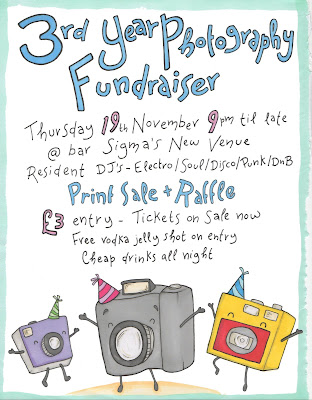 3rd Year Photography
Fundraiser
Thursday 19th November 9pm til late
@ bar Sigma's New Venue
Resident DJ's - Electro/Soul/Disco/Punk/DnB
Print Sale + Raffle
£3 entry - Tickets on Sale now
Free vodka jelly shot on entry
Cheap drinks all night